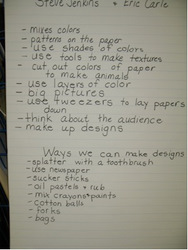 Steve Jenkins + Eric Carle
- mixes colors
- patterns on the paper
- use shades of colors
- use tools to make textures
- cut out colors of paper
to make animals
- use layers of color
- big pictures
- use tweezers to lay papers
down
- think about the audience
- make up designs
Ways we can make designs
- splatter with a toothbrush
- use newspaper
- sucker sticks
- oil pastels + rub
- mix crayons + paints
- cotton balls
- forks
- bags